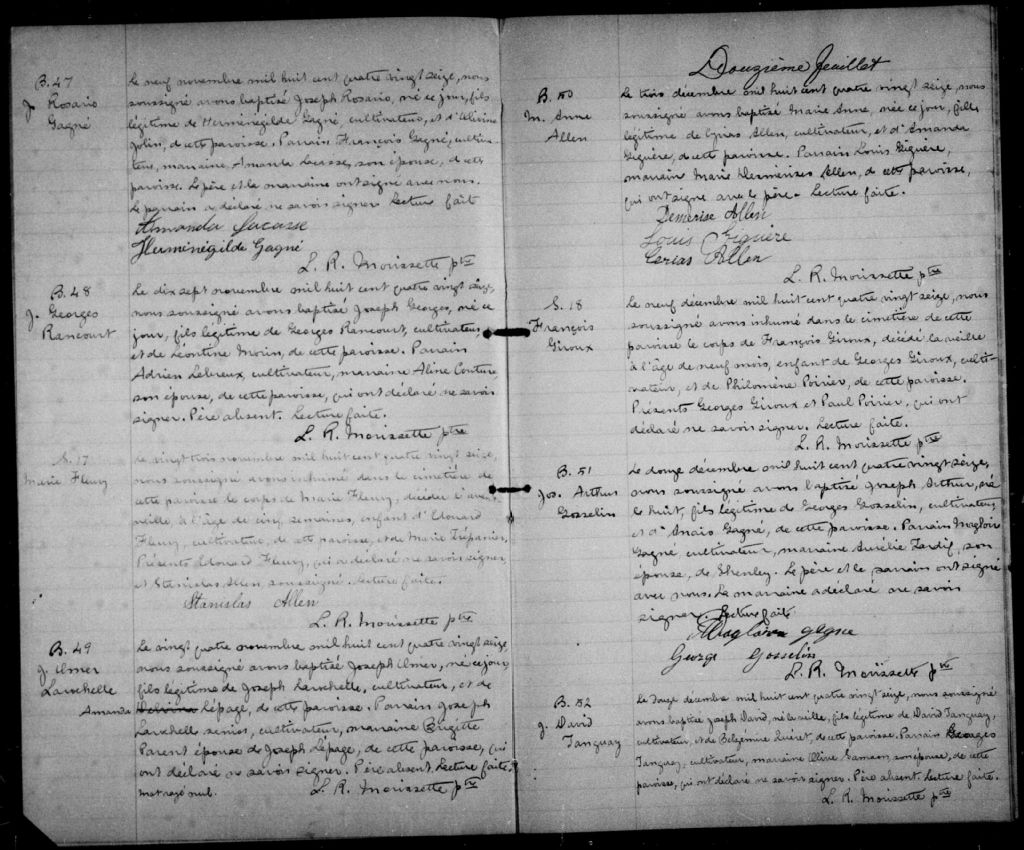 B. 47
J. Rosario
Gagné
Le neuf novembre mil huit cent quatre vingt seize, nous
soussigné avons baptisé Joseph Rosario, né ce jour, fils
légitime de Herménégilde Gagné, cultivateur, et d'Alvina
de cette paroisse. Parrain François Gagné, cultiva-
teur, marraine Amanda Lacasse, son épouse, de cette
paroisse. Le père et la marraine ont signé avec nous.
Le parrain a déclaré ne savoir signer Lecture fait
Amanda Lacasse
Herménégilde Gagné
L. R. Morissette ptre
B. 48
J. Georges
Rancourt
Le dix sept novembre mil huit cent quatre vingt seize,
nous soussigné avons baptisé Joseph Georges, né ce
jour, fils légitime de Georges Rancourt, cultivateur,
et de Léontine Morin, de cette paroisse. Parrain
Adrien Lebreux, cultivateur, marraine Aline Couture,
son épouse, de cette paroisse, qui ont déclaré ne savoir
signer. Père absent. Lecture faite.
L. R. Morissette ptre
S. 17
Marie Fleury
Le vingt trois novembre mil huit cent quatre vingt seize,
nous soussigné avons inhumé dans le cimetière de
cette paroisse le corps de Marie Fleury, décédée l'avant
veille à l'âge de cinq semaines, enfant d'Edouard
Fleury, cultivateur, de cette paroisse, et de Marie Trépanier.
Présents Edouard Fleury, qui a déclaré ne savoir signer,
et Stanislas Allen, soussigné. Lecture faite.
Stanislas Allen
L. R. Morissette ptre
B. 49
J. Elmer
Larochelle
Le vingt quatre novembre mil huit cent quatre vingt seize
nous soussigné avons baptisé Joseph Elmer, né ce jour,
fils légitime de Joseph Larochelle, cultivateur, et de
Amanda Delvina Lépage, de cette paroisse. Parrain Joseph
Larochelle senior, cultivateur, marraine Brigitte
Parent épouse de Joseph Lépage, de cette paroisse, qui
ont déclaré ne savoir signer. Père absent. Lecture faite.
mot rayé nul. L. R. Morissette ptre
Douzième feuillet
B. 50
M. Anne
Allen
Le trois décembre mil huit cent quatre vingt seize, nous
soussigné avons baptisé Marie Anne, née ce jour, fille
légitime de Cyrias Allen, cultivateur, et d'Amanda
Giguère, de cette paroisse. Parrain Louis Giguère,
marrain Marie Desmerises Allen, de cette paroisse,
qui ont signé avec le père. Lecture faite.
Demerise Allen
Louis Giguère
Cerias Allen
L. R. Morissette ptre
S. 18
François
Giroux
Le neuf décembre mil huit cent quatre vingt seize, nous
soussigné avons inhumé dans le cimetière de cette
paroisse le corps de François Giroux, décédé la veille
à l'âge de neuf mois, enfant de Georges Giroux, culti-
vateur, et de Philomène Poirier, de cette paroisse.
Présents Georges Giroux et Paul Poirier, qui ont
déclaré ne savoir signer. Lecture faite.
L. R. Morissette ptre
B. 51
Jos. Arthur
Gosselin
Le douze décembre mil huit cent quatre vingt seize,
nous soussigné avons baptisé Joseph Arthur, né
le huit, fils légitime de Georges Gosselin, cultivateur,
et d'Anaïs Gagné, de cette paroisse. Parrain Magloire
Gagné cultivateur, marraine Aurélie Tardif, son
épouse, de Shenley. Le père et le parrain ont signé
avec nous. La marraine a déclaré ne savoir
signer. Lecture faite
Magloire gagne
George Gosselin
L. R. Morissette ptre
B. 52
J. David
Tanguay
Le douze décembre mil huit cent quatre vingt seize, nous soussigné
avons baptisé Joseph David, né la veille, fils légitime de David Tanguay,
cultivateur, et de Belzémine Quéret, de cette paroisse. Parrain Georges
Tanguay, cultivateur, marraine Olive Samson, son épouse, de cette
paroisse, qui ont déclaré ne savoir signer. Père absent. Lecture faite.
L. R. Morissette ptre